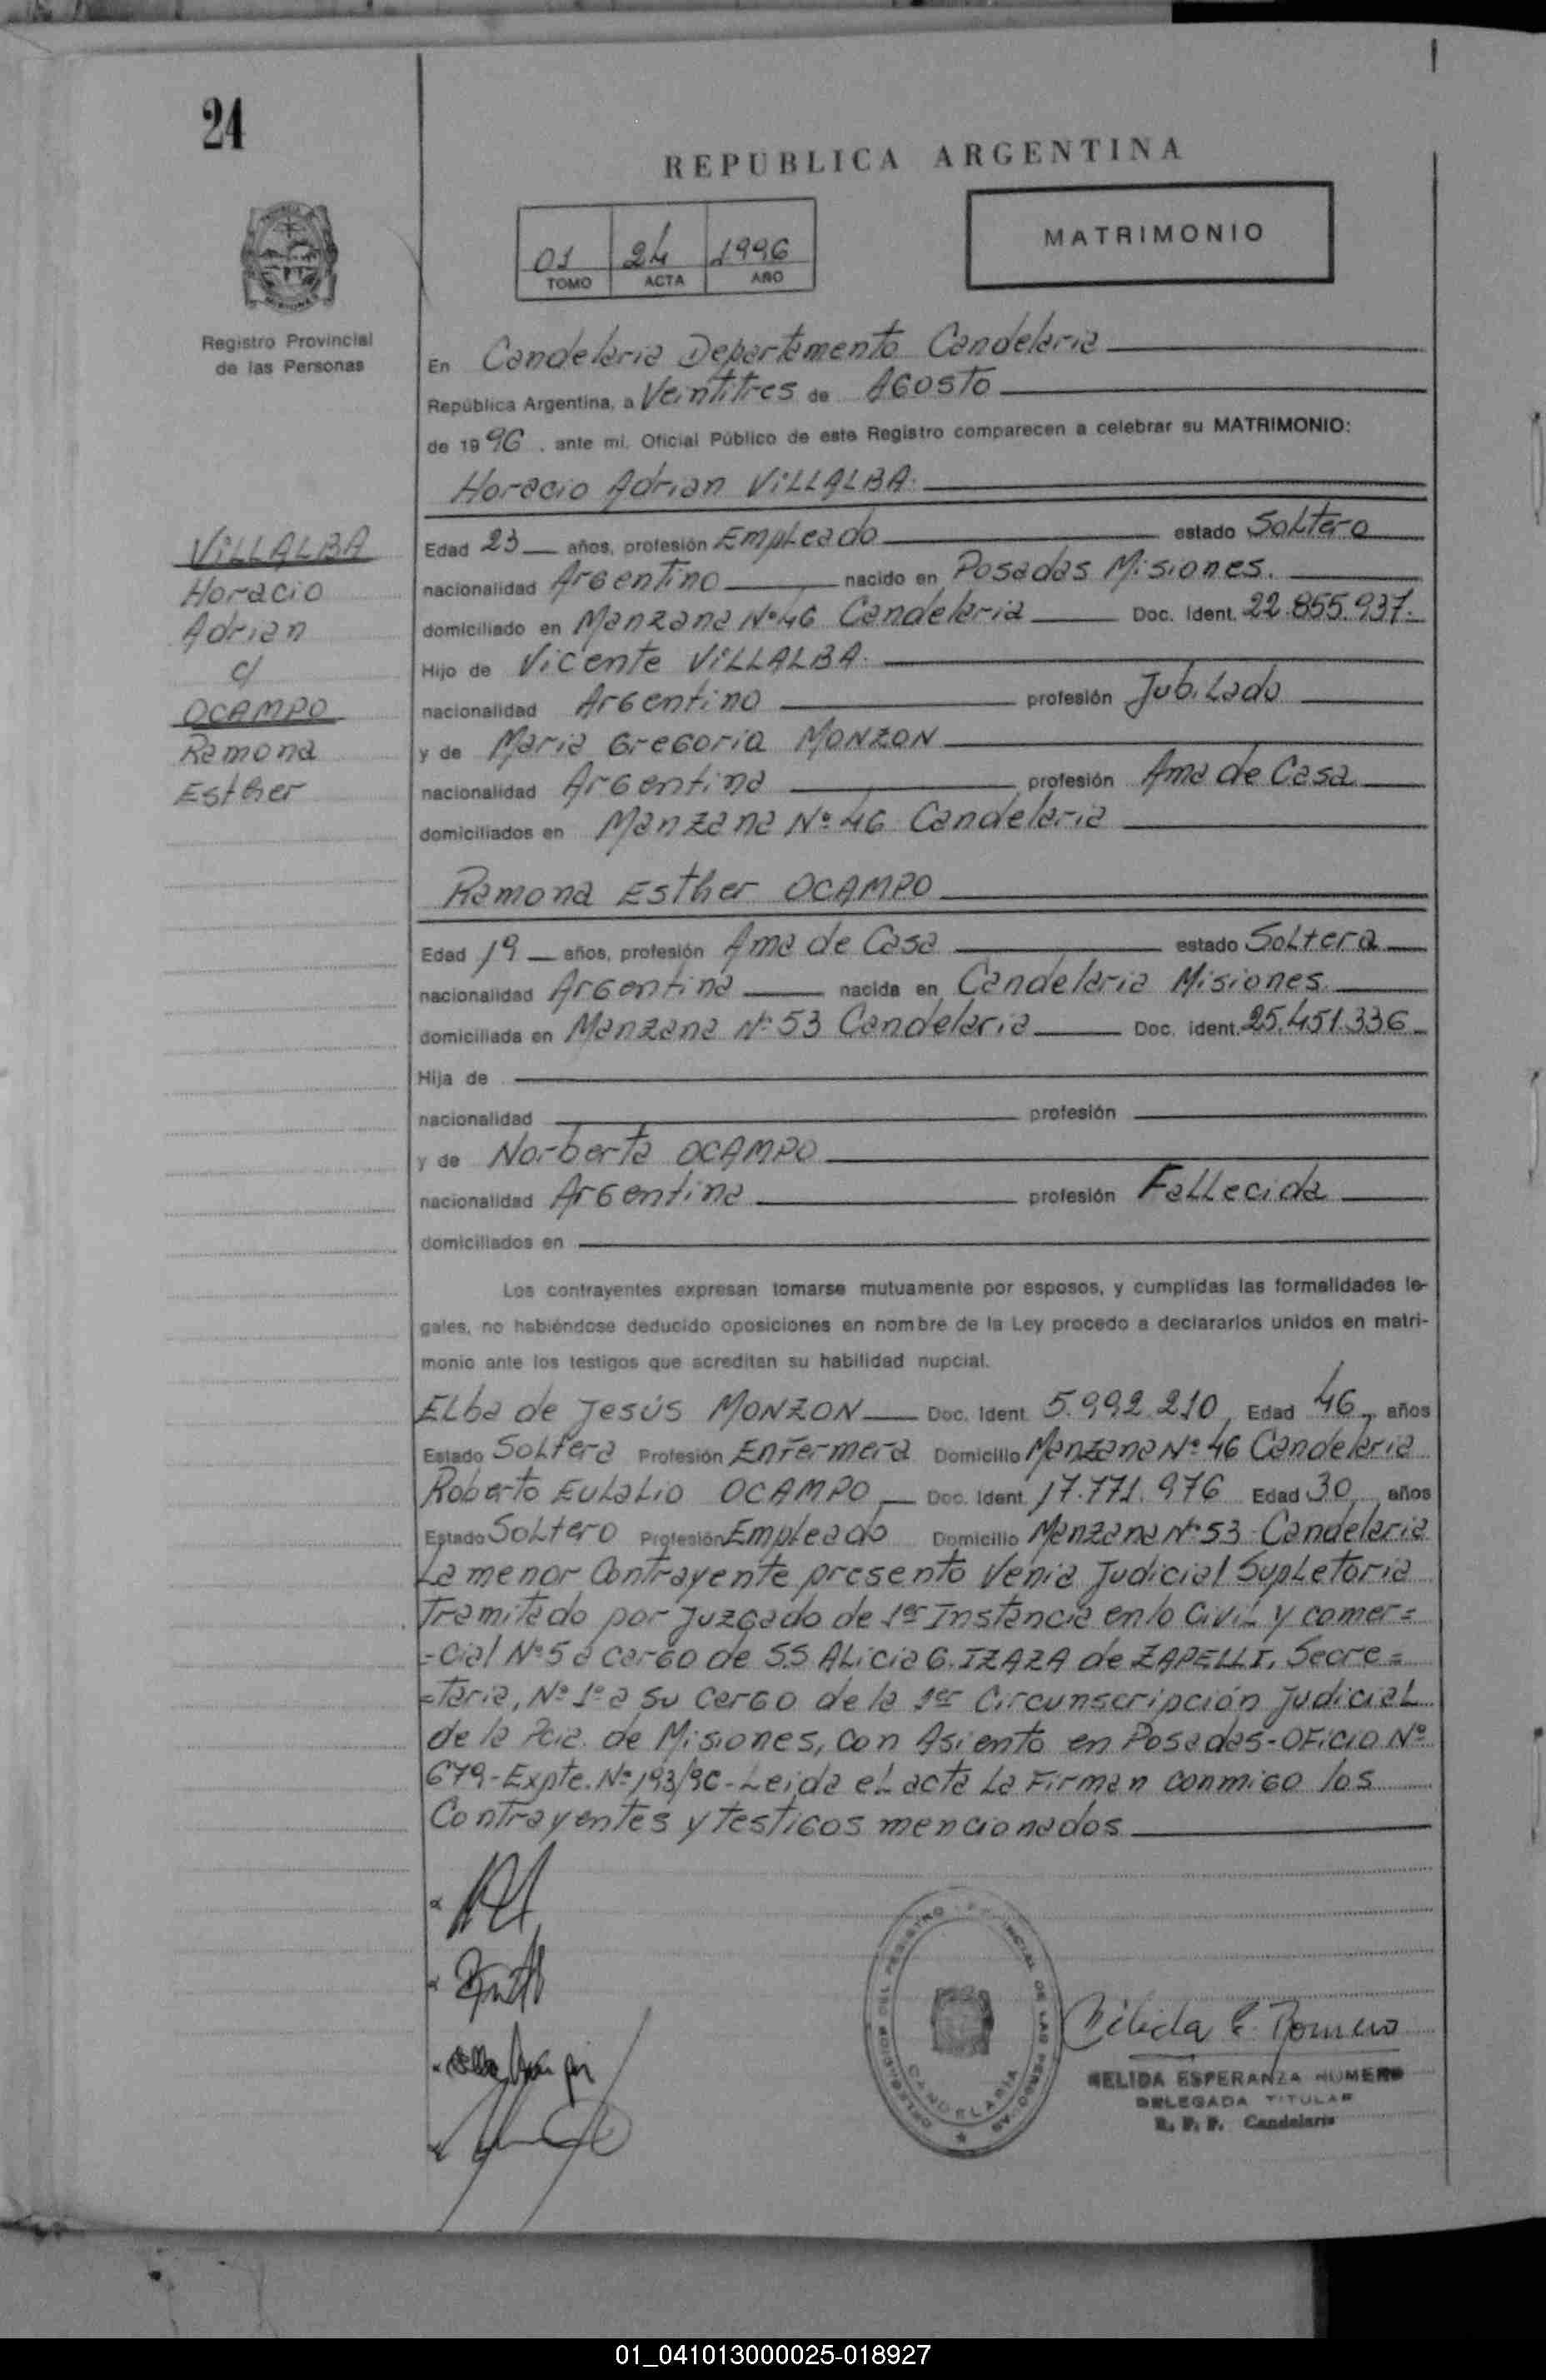 24
REPUBLICA ARGENTINA
01 24 1996
TOMO ACTA AÑO
MATRIMONIO
Registro Provincial
de las Personas
En Candelaria Departamento Candelaria
República Argentina, a Veintitres de Agosto
de 1996. ante mi, Oficial Público de este Registro comparecen a celebrar su MATRIMONIO:
Horacio Adrian VILLALBA.
VILLALBA
Horacio
Adrian
c/
OCAMPO
Ramona
Esther
Edad 23 años, profesión Empleado estado Soltero
nacionalidad Argentino nacido en Posadas Misiones.
domiciliado en Manzana Nº 46 Candelaria Doc. Ident. 22.855.937.
Hijo de Vicente VILLALBA.
nacionalidad Argentino profesión Jubilado
y de Maria Gregoria MONZON
nacionalidad Argentina profesión Ama de Casa
domiciliados en Manzana Nº 46 Candelaria
Ramona Esther OCAMPO
Edad 19 años, profesión Ama de Casa estado Soltera
nacionalidad Argentina nacida en Candelaria Misiones.
domiciliada en Manzana Nº 53 Candelaria Doc. Ident. 25.451.336
Hija de
nacionalidad profesión
y de Norberta OCAMPO
nacionalidad Argentina profesión Fallecida
domiciliados en
Los contrayentes expresan tomarse mutuamente por esposos, y cumplidas las formalidades le-
gales, no habiéndose deducido oposiciones en nombre de la Ley procedo a declararlos unidos en matri-
monio ante los testigos que acreditan su habilidad nupcial.
Elba de Jesús MONZON Doc. Ident. 5.992.210 Edad 46 años
Estado Soltera Profesión Enfermera Domicilio Manzana Nº 46 Candelaria
Roberto Eulalio OCAMPO Doc. Ident. 17.771.976 Edad 30 años
Estado Soltero Profesión Empleado Domicilio Manzana Nº 53 Candelaria
La menor Contrayente presento Venia Judicial Supletoria
Tramitado por Juzgado de 1er Instancia en lo Civil y comer=
=cial Nº 5 a cargo de S.S Alicia G. IZAZA de ZAPELLI, Secre=
=taria, Nº 1º a su cargo de la 1er Circunscripción Judicial
de la Pcia. de Misiones, con Asiento en Posadas-OFicio Nº
679-Expte. Nº 193/96-Leida el acta La Firman conmigo los
Contrayentes y testigos mencionados
DELEGACION DEL REGISTRO PROVINCIAL DE LAS PERSONAS
CANDELARIA
Nélida E. Romero
NELIDA ESPERANZA ROMERO
DELEGADA TITULAR
R. P. P. Candelaria
01_041013000025-018927